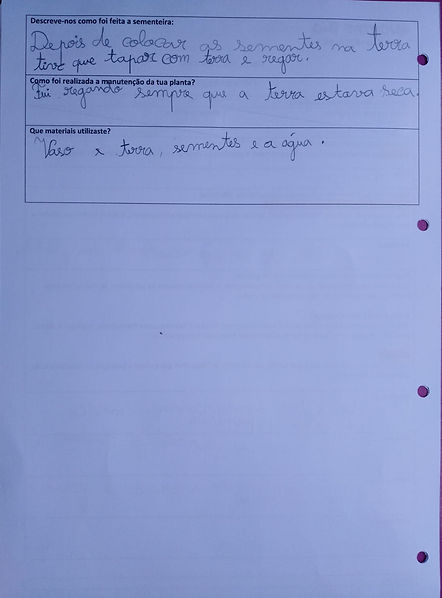 Descreve-nos como foi feita a sementeira:
Depois de colocar as sementes na terra
tive que tapar com terra e regar.
Como foi realizada a manutenção da tua planta?
Fui regando sempre que a terra estava seca.
Que materiais utilizaste?
Vaso a terra, sementes e a água.